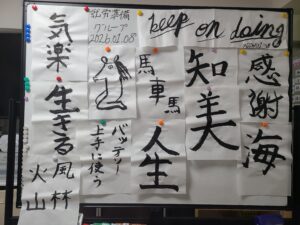 就労準備
グループ
2026.01.08
keep on doing
感謝
海
知美
馬
車馬
人生
バッテリー
上手に使う
気楽
生きる
風林
火山